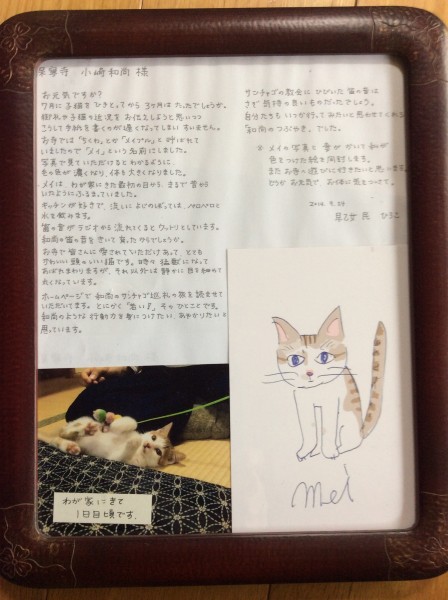 寺 小崎和尚 様
お元気ですか?
7月に子猫をひきとってから 3ヶ月はたったでしょうか。
御礼や子猫の近況を お伝えしようと思いつつ
こうして手紙を書くのが遅くなってしまい すいません。
お寺では「ちくわ」とか「メイプル」と 呼ばれて
いましたので「メイ」という名前にしました。
写真で見ていただけるとわかるように、
毛の色が濃くなり、体も大きくなりました。
メイは、わが家にきた最初の日から、まるで昔から
いたようにふるまっていました。
キッチンが好きで、流しに よじのぼっては、ペロペロと
水を飲みます。
笛の音がラジオから流れてくるとウットリとしています。
和尚の笛の音を きいて 育ったからでしょうか。
お寺で皆さんに愛されていただけあって、とても
かわいい 頭のいい猫です。時々 猛獣になって
あばれまわりますが、それ以外は静かに 目を細めて
丸くなっています。
ホームページで 和尚のサンチャゴ巡礼の旅を読ませて
いただいてます。とにかく「若い!」そのひとことです。
和尚のような行動力を身につけたい、あやかりたいと
思っています。
サンチャゴの教会に ひびいた 笛の音は
さぞ気持の良いものだったでしょう。
自分たちも いつか行ってみたいと思わせてくれる
「和尚のつぶやき」でした。
※ メイの写真と 音が かいて 和が
色をつけた絵を同封します。
また お寺へ 遊びに行きたいと思います。
どうか お元気で お体に気をつけて。
2016.9.23
早乙女 ひろこ
わが家にきて
1日目頃です。
mei